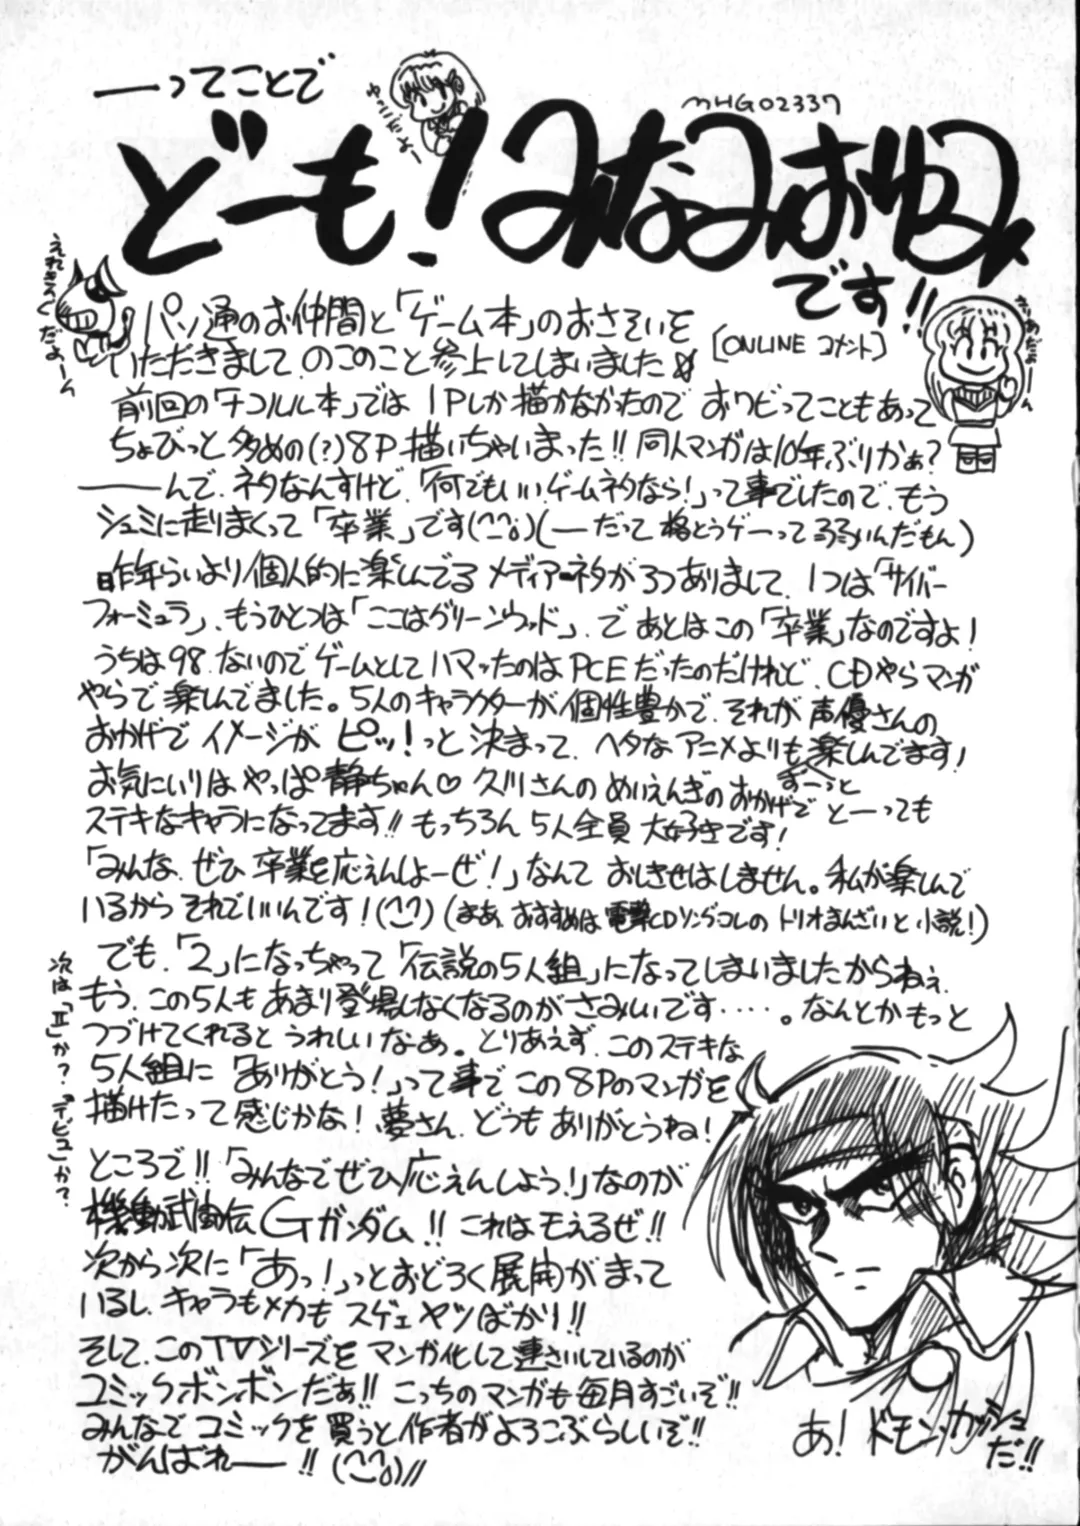 ―ってことで
ゆうこだよー
MHG02337
どーも!みなみおゆみ
です!!
えれきんぐだよーん
きあだよーん
パソ通のお仲間と「ゲーム本」のおさそいを
[ONLINE コメント]
いただきまして、のこのこと参上してしまいました
前回の「ナコルル本」では1Pしか描かなかったので おワビってこともあって
ちょびっと多めの(?)8P描いちゃいまった!! 同人マンガは10年ぶりかぁ?
―んで、ネタなんすけど、「何でもいいゲームネタなら!」って事でしたので、もう
シュミに走りまくって「卒業」です(^^;)(―だって 格とうゲーってろろいんだもん)
昨年らいより個人的に楽しんでるメディアネタが3つありまして、1つは「サイバー
フォーミュラ」、もうひとつは「ここはグリーンウッド」、で あとはこの「卒業」なのですよ!
うちは98、ないのでゲームとしてハマッたのはPCEだったのだけれど CDやらマンガ
やらで楽しんでました。5人のキャラクターが個性豊かで、それが声優さんの
おかげでイメージがピッ!っと決まって、ヘタなアニメよりも楽しんでます!
お気にいりはやっぱ静ちゃん♡ 久川さんのめいえんぎのおかげでずーっと と―っても
ステキなキャラになってます!! もっちろん5人全員大好きです!
「みんな、ぜひ卒業を応えんしよーぜ!」なんて おしきせはしません。私が楽しんで
いるからそれでいいんです!(^^)(まあ、おすすめは電撃CDソングコレのトリオまんざいと小説!)
でも、「2」になっちゃって「伝説の5人組」になってしまいましたからねぇ、
もう、この5人もあまり登場しなくなるのがさみしいです・・・・。なんとかもっと
つづけてくれるとうれしいなぁ。とりあえず、このステキな
5人組に「ありがとう!」って事でこの8Pのマンガを
描けたって感じかな! 夢さん、どうもありがとうね!
次は「Ⅱ」か?「デビュ」か?
ところで!!「みんなでぜひ応えんしよう!」なのが
機動武闘伝Gガンダム!! これはモえるぜ!!
次から次に「あっ!」っとおどろく展開がまって
いるし、キャラもメカもスゲェヤツばかり!!
そして、このTVシリーズをマンガ化して連さいしているのが
コミックボンボンだぁ!! こっちのマンガも毎月すごいぞ!!
みんなでコミックを買うと作者がよろこぶらしいぞ!!
がんばれ―!!(^^;)//
あ! ドモン・カッシュ
だ!!